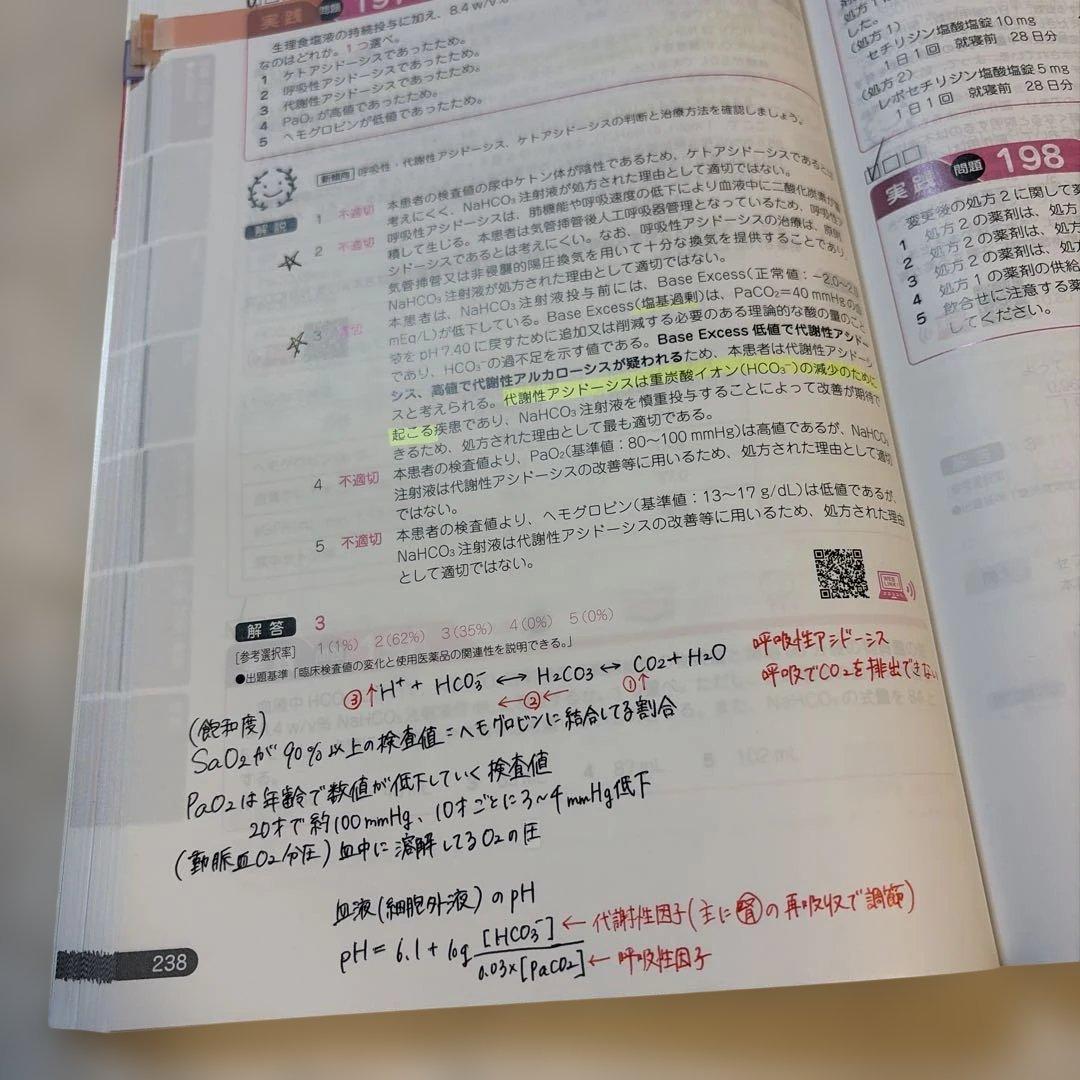 実践 問題 197
生理食塩液の持続投与に加え、8.4 w/v%
なのはどれか。1つ選べ。
1 ケトアシドーシスであったため。
2 呼吸性アシドーシスであったため。
3 代謝性アシドーシスであったため。
4 PaO₂が高値であったため。
5 ヘモグロビンが低値であったため。
新傾向 呼吸性・代謝性アシドーシス、ケトアシドーシスの判断と治療方法を確認しましょう。
解説
1 不適切 本患者の検査値の尿中ケトン体が陰性であるため、ケトアシドーシスであるとは
考えにくく、NaHCO₃注射液が処方された理由として適切ではない。
2 不適切 呼吸性アシドーシスは、肺機能や呼吸速度の低下により血液中に二酸化炭素が蓄
積して生じる。本患者は気管挿管後人工呼吸器管理となっているため、呼吸性ア
シドーシスであるとは考えにくい。なお、呼吸性アシドーシスの治療は、原則
気管挿管又は非侵襲的陽圧換気を用いて十分な換気を提供することであり、
NaHCO₃注射液が処方された理由として適切ではない。
3 適切 本患者は、NaHCO₃注射液投与前には、Base Excess(正常値：−2.0〜2.0
mEq/L)が低下している。Base Excess(塩基過剰)は、PaCO₂=40 mmHgの血
装をpH 7.40に戻すために追加又は削減する必要のある理論的な酸の量のこと
であり、HCO₃⁻の過不足を示す値である。Base Excess 低値で代謝性アシドー
シス、高値で代謝性アルカローシスが疑われるため、本患者は代謝性アシドーシ
スと考えられる。代謝性アシドーシスは重炭酸イオン(HCO₃⁻)の減少のために
起こる疾患であり、NaHCO₃注射液を慎重投与することによって改善が期待で
きるため、処方された理由として最も適切である。
4 不適切 本患者の検査値より、PaO₂(基準値：80〜100 mmHg)は高値であるが、NaHCO₃
注射液は代謝性アシドーシスの改善等に用いるため、処方された理由として適切
ではない。
5 不適切 本患者の検査値より、ヘモグロビン(基準値：13〜17 g/dL)は低値であるが、
NaHCO₃注射液は代謝性アシドーシスの改善等に用いるため、処方された理由
として適切ではない。
WEB LINK!
解答 3
[参考選択率] 1(1%) 2(62%) 3(35%) 4(0%) 5(0%)
●出題基準「臨床検査値の変化と使用医薬品の関連性を説明できる。」
③↑H⁺ + HCO₃⁻ ↔ H₂CO₃ ↔ CO₂ + H₂O
←②← ①↑
呼吸性アシドーシス
呼吸でCO₂を排出できない
(飽和度)
SaO₂が90%以上の検査値=ヘモグロビンに結合してる割合
PaO₂は年齢で数値が低下していく検査値
20才で約100mmHg、10才ごとに3〜4mmHg低下
(動脈血O₂分圧)血中に溶解してるO₂の圧
血液(細胞外液)のpH
pH = 6.1 + log [HCO₃⁻] / 0.03×[PaCO₂]
← 代謝性因子(主に腎の再吸収で調節)
← 呼吸性因子
238
した。
(処方1)
セチリジン塩酸塩錠 10 mg
1日1回 就寝前 28日分
(処方2)
レボセチリジン塩酸塩錠 5 mg
1日1回 就寝前 28日分
実践 問題 198
変更後の処方2に関して薬
1 処方2の薬剤は、処方
2 処方2の薬剤は、処方
3 処方2の薬剤は、処方
4 処方1の薬剤の供給
5 飲合せに注意する薬
してください。